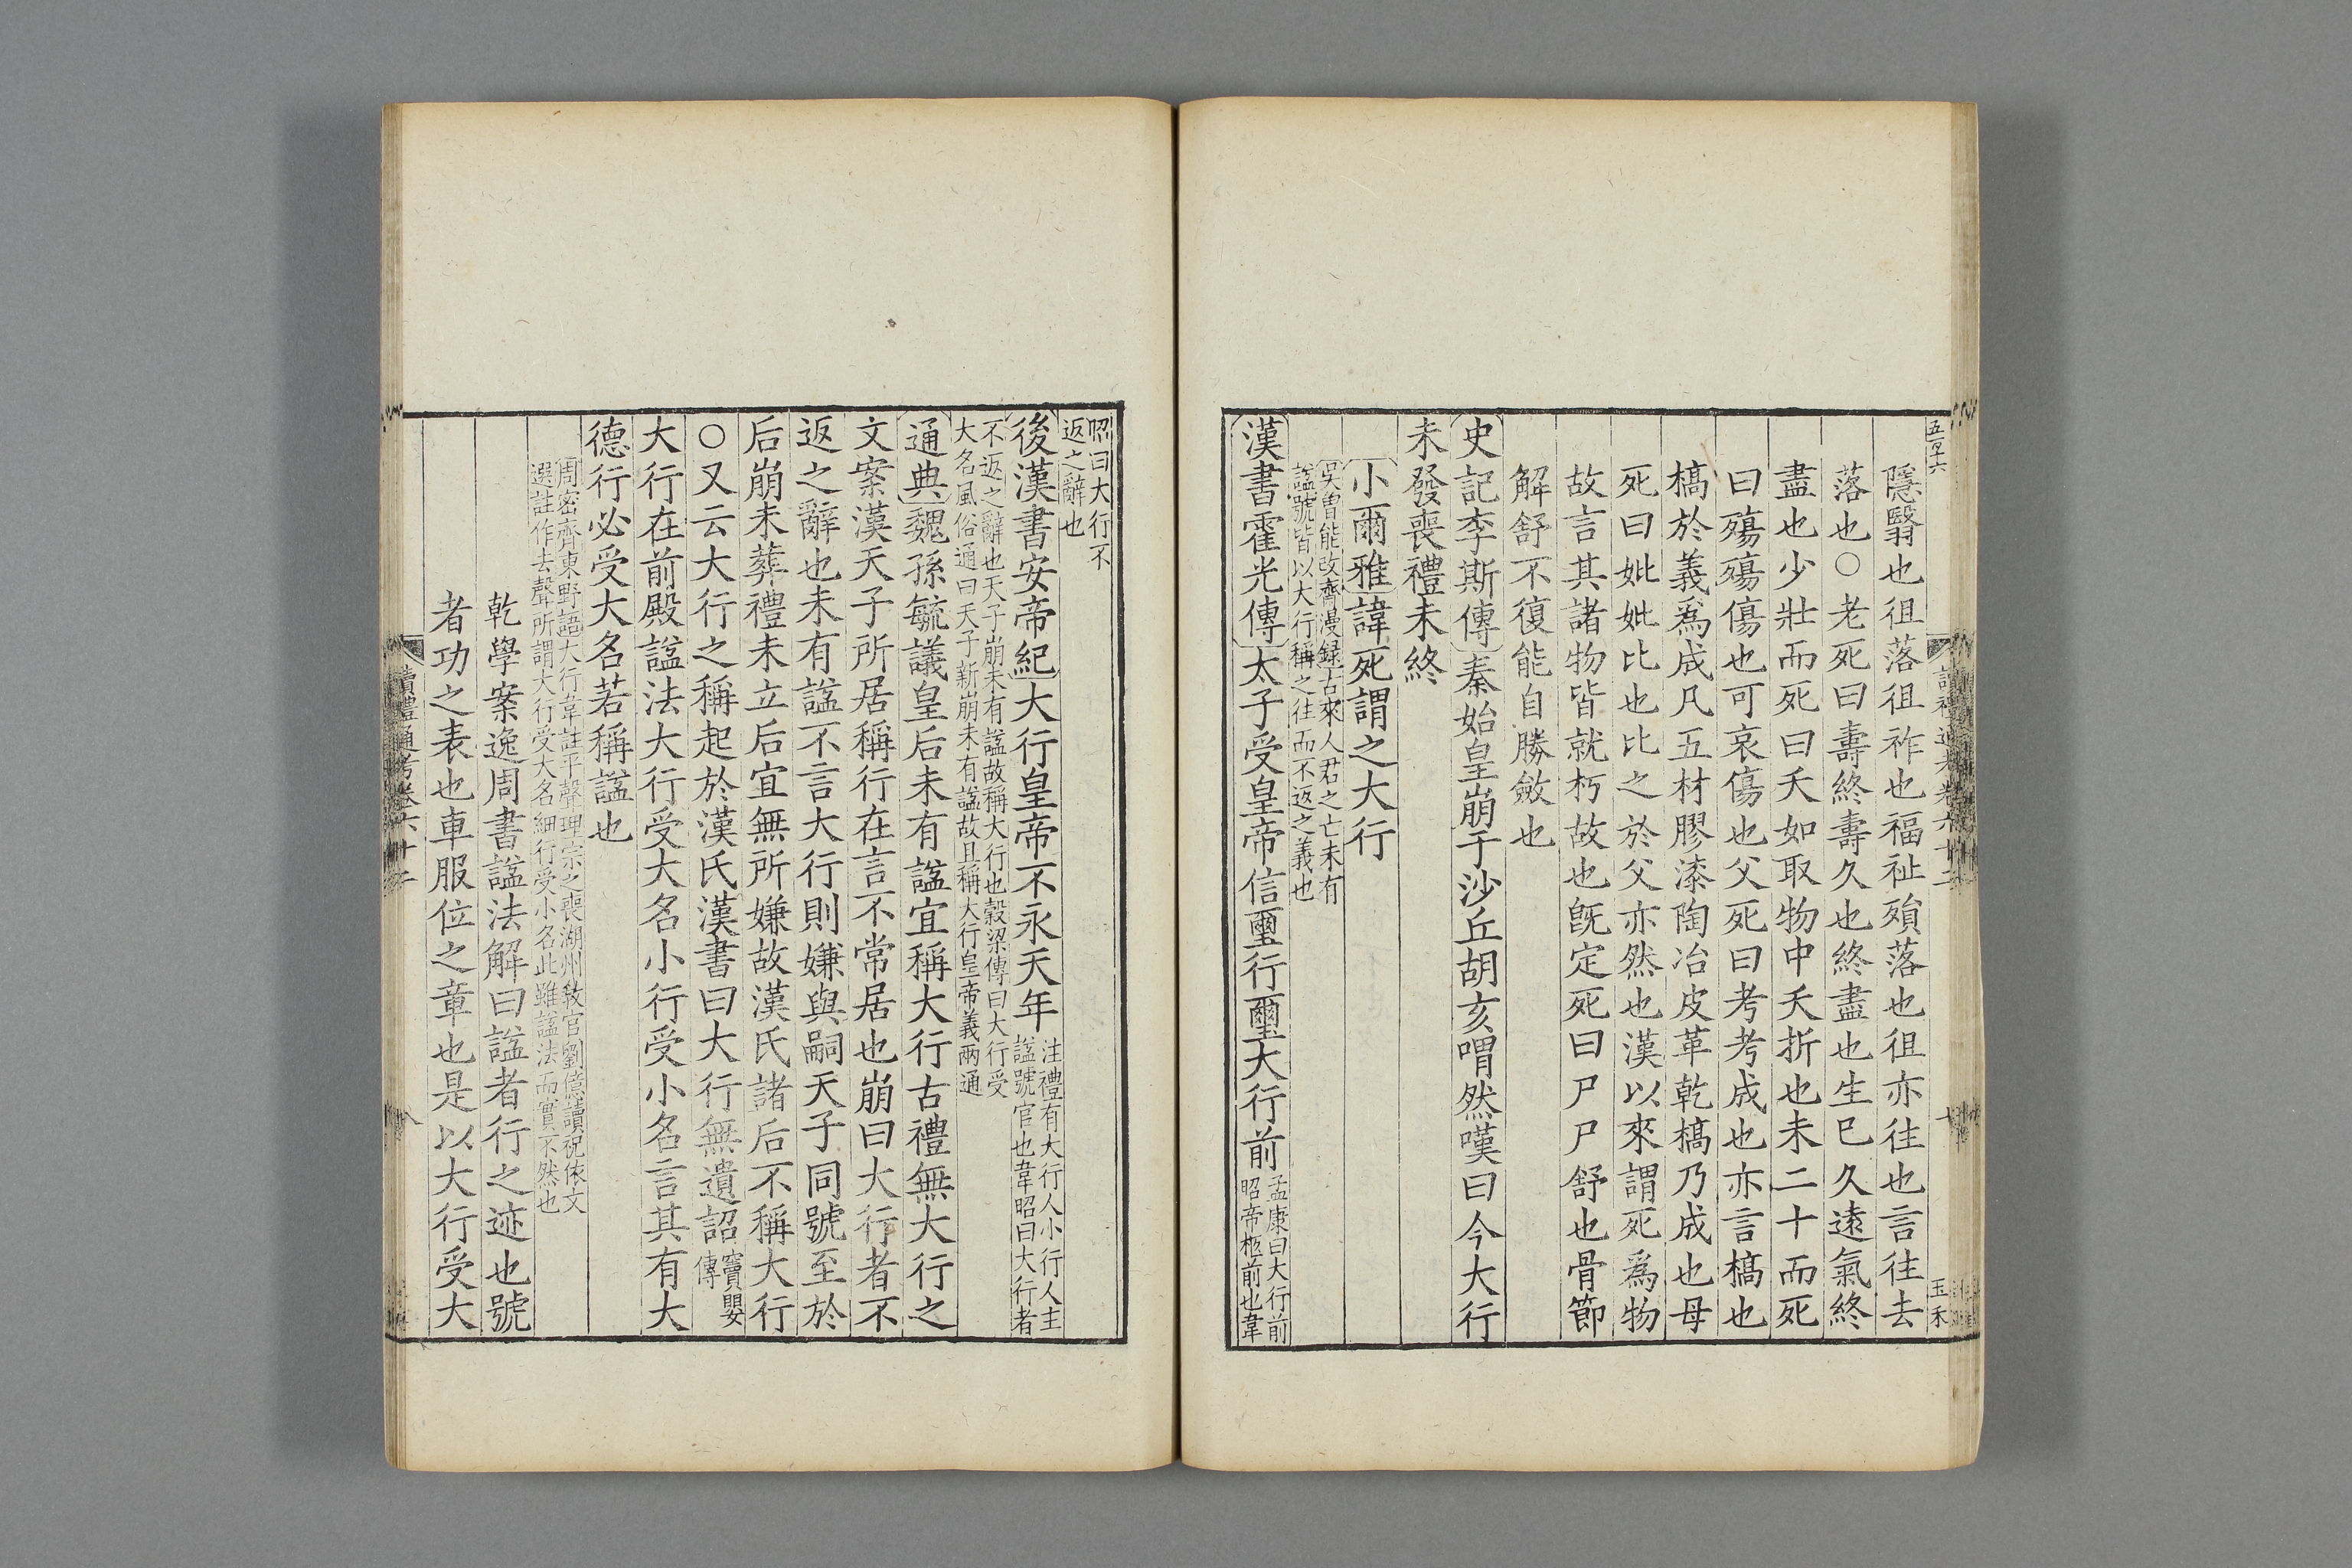 五百四十六
讀禮通考卷六十二
七
玉禾
隱翳也徂落徂祚也福祉殞落也徂亦往也言往去
落也○老死曰壽終壽久也終盡也生已久遠氣終
盡也少壯而死曰夭如取物中夭折也未二十而死
曰殤殤傷也可哀傷也父死曰考考成也亦言槁也
槁於義爲成凡五材膠漆陶冶皮革乾槁乃成也母
死曰妣妣比也比之於父亦然也漢以來謂死爲物
故言其諸物皆就朽故也旣定死曰尸尸舒也骨節
解舒不復能自勝斂也
史記李斯傳秦始皇崩于沙丘胡亥喟然嘆曰今大行
未發喪禮未終
小爾雅諱死謂之大行
吳曾能改齋漫録古來人君之亡未有
諡號皆以大行稱之往而不返之義也
漢書霍光傳太子受皇帝信璽行璽大行前
孟康曰大行前
昭帝柩前也韋
昭曰大行不
返之辭也
後漢書安帝紀大行皇帝不永天年
注禮有大行人小行人主
諡號官也韋昭曰大行者
不返之辭也天子崩未有諡故稱大行也穀梁傳曰大行受
大名風俗通曰天子新崩未有諡故且稱大行皇帝義兩通
通典魏孫毓議皇后未有諡宜稱大行古禮無大行之
文案漢天子所居稱行在言不常居也崩曰大行者不
返之辭也未有諡不言大行則嫌與嗣天子同號至於
后崩未葬禮未立后宜無所嫌故漢氏諸后不稱大行
○又云大行之稱起於漢氏漢書曰大行無遺詔
竇嬰
傳
大行在前殿諡法大行受大名小行受小名言其有大
德行必受大名若稱諡也
周密齊東野語大行韋註平聲理宗之喪湖州敎官劉億讀祝依文
選註作去聲所謂大行受大名細行受小名此雖諡法而實不然也
乾學案逸周書諡法解曰諡者行之迹也號
者功之表也車服位之章也是以大行受大
讀禮通考卷六十二
八